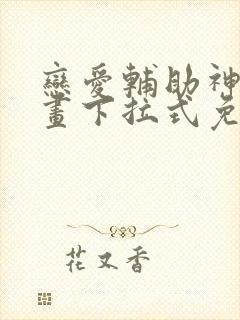 戀愛輔助神
畫下拉式免
花又香